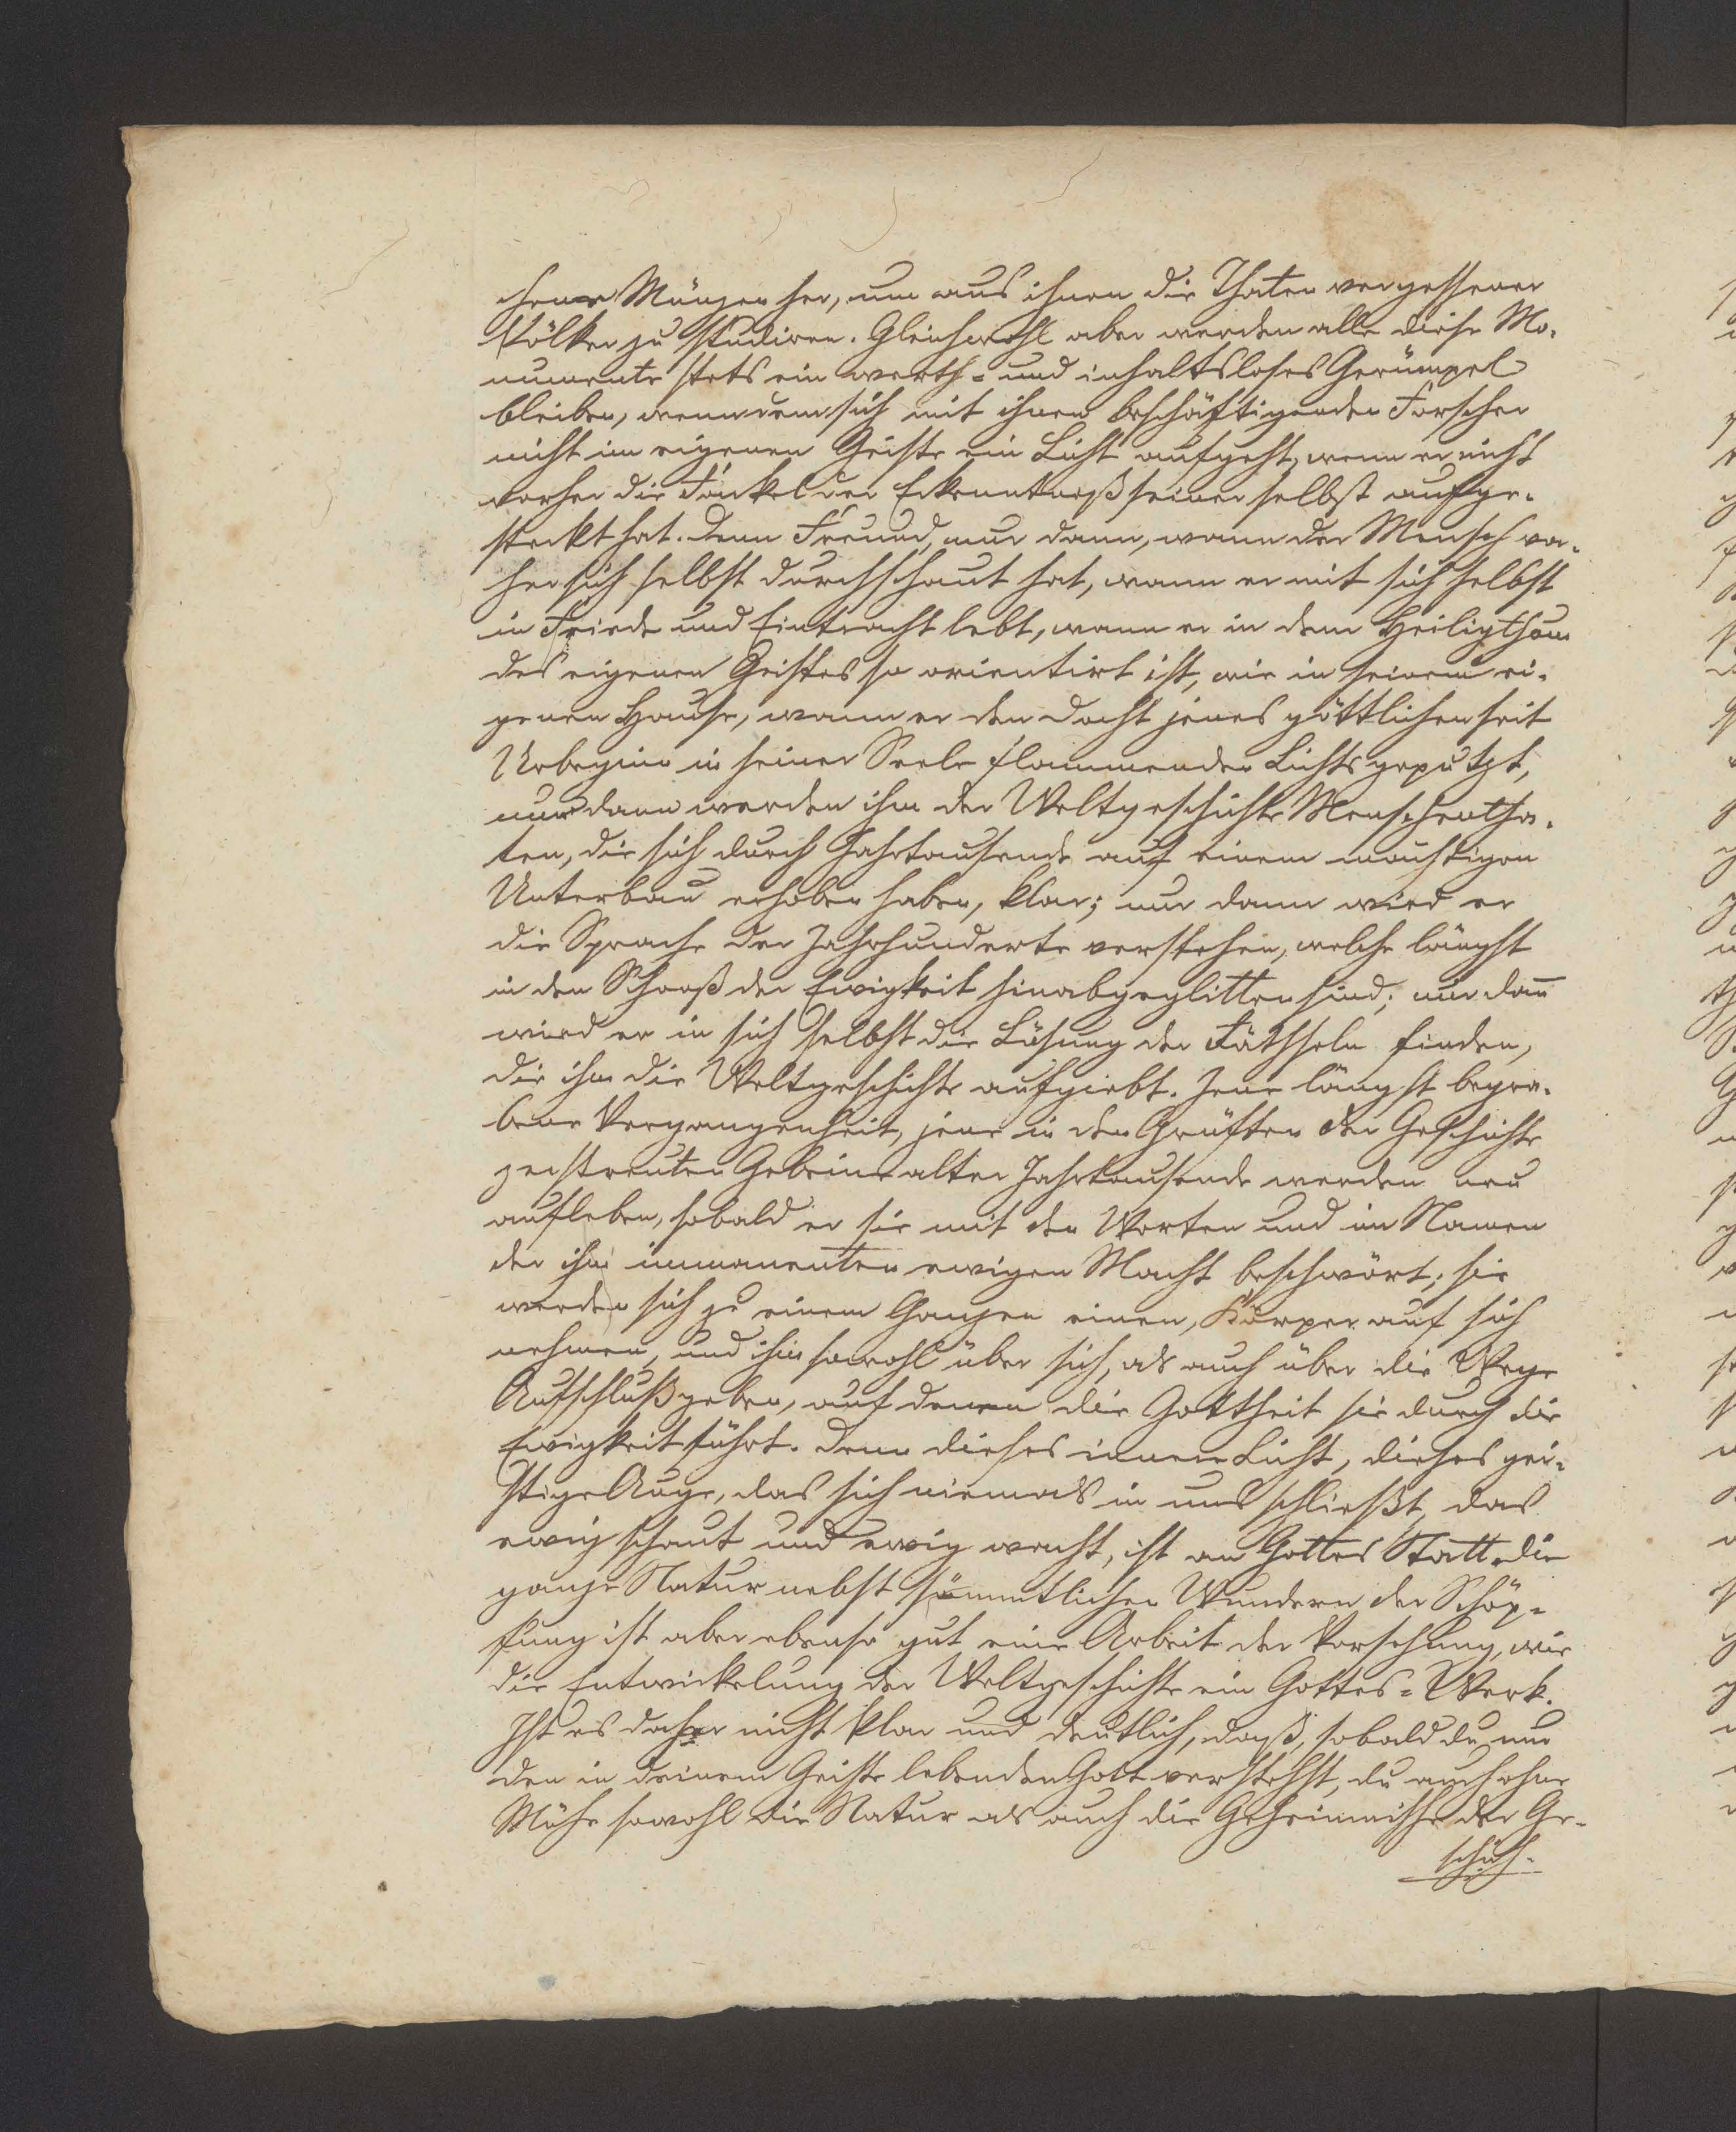 chener Münzen her, um aus ihnen die Thaten vergessener
Völker zu studiren. Gleichwohl aber werden alle diese Mo-
numente stets ein werth- und inhaltsloses Gerümpel
bleiben, wenn dem sich mit ihnen beschäftigenden Forscher
nicht im eigenen Geiste ein Licht aufgeht, wenn er nicht
vorher die Fackel der Erkenntniß seiner selbst aufge-
steckt hat. Denn Freund, nur dann, wann der Mensch vor-
her sich selbst durchschaut hat, wann er mit sich selbst
in Friede und Eintracht lebt, wann er in dem Heiligthum
des eigenen Geistes so orientirt ist, wie in seinem ei-
genen Hause, wann er den Docht jenes göttlichen seit
Urbeginn in seiner Seele flammenden Lichts geputzt,
nur dann werden ihm der Weltgeschichte Menschentha-
ten, die sich durch Jahrtausende auf einem mächtigen
Unterbau erhoben haben, klar; nur dann wird er
die Sprache der Jahrhunderte verstehen, welche längst
in den Schooß der Ewigkeit hinabgeglitten sind; nur dan̄
wird er in sich selbst die Lösung der Räthseln finden,
die ihm die Weltgeschichte aufgiebt. Jene längst begra-
bene Vergangenheit, jene in den Grüften der Geschichte
zerstreuten Gebeine alter Jahrtausende werden neu
aufleben, sobald er sie mit den Worten und im Namen
der ihm immanenten ewigen Macht beschwört; sie
werden sich zu einem Ganzen einen, Körper auf sich
nehmen, und ihm sowohl über sich, als auch über die Wege
Aufschluß geben, auf denen die Gottheit sie durch die
Ewigkeit führt. Denn dieses innere Licht, dieses gei-
stige Auge, das sich niemals in uns schließt, das
ewig schaut und ewig wacht, ist an Gottes Statt. Die
ganze Natur nebst sämmtlichen Wundern der Schöp-
fung ist aber ebenso gut eine Arbeit der Vorsehung, wie
die Entwickelung der Weltgeschichte ein Gottes-Werk.
Ist es daher nicht klar und deutlich, daß, sobald du nur
den in deinem Geiste lebenden Gott verstehst, du auch ohne
Mühe sowohl die Natur als auch die Geheimnisse der Ge-
schich-